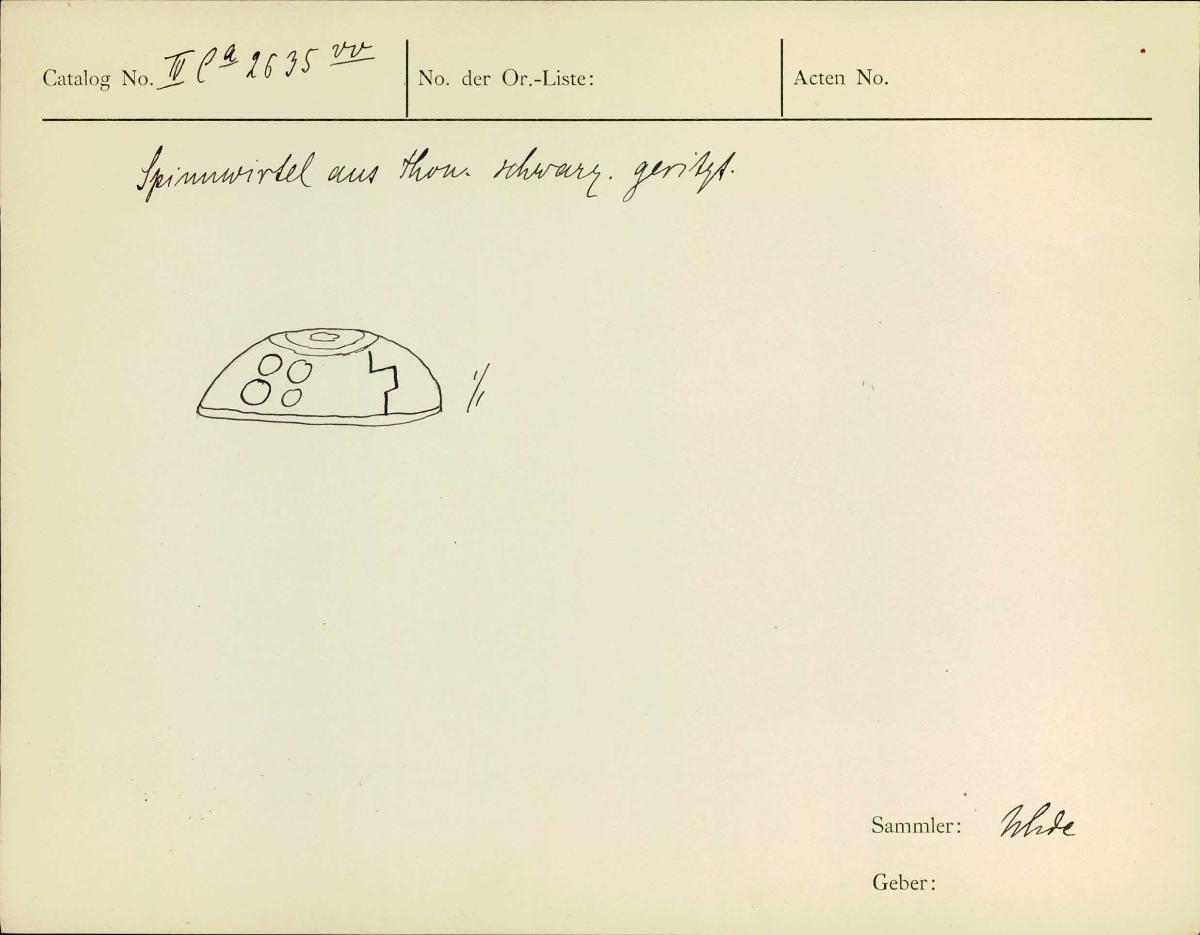 Catalog No. IV Ca 2635 vv
No. der Or.-Liste:
Acten No.
Spinnwirtel aus Thon. schwarz. geritzt.
1/1
Sammler: Uhde
Geber: